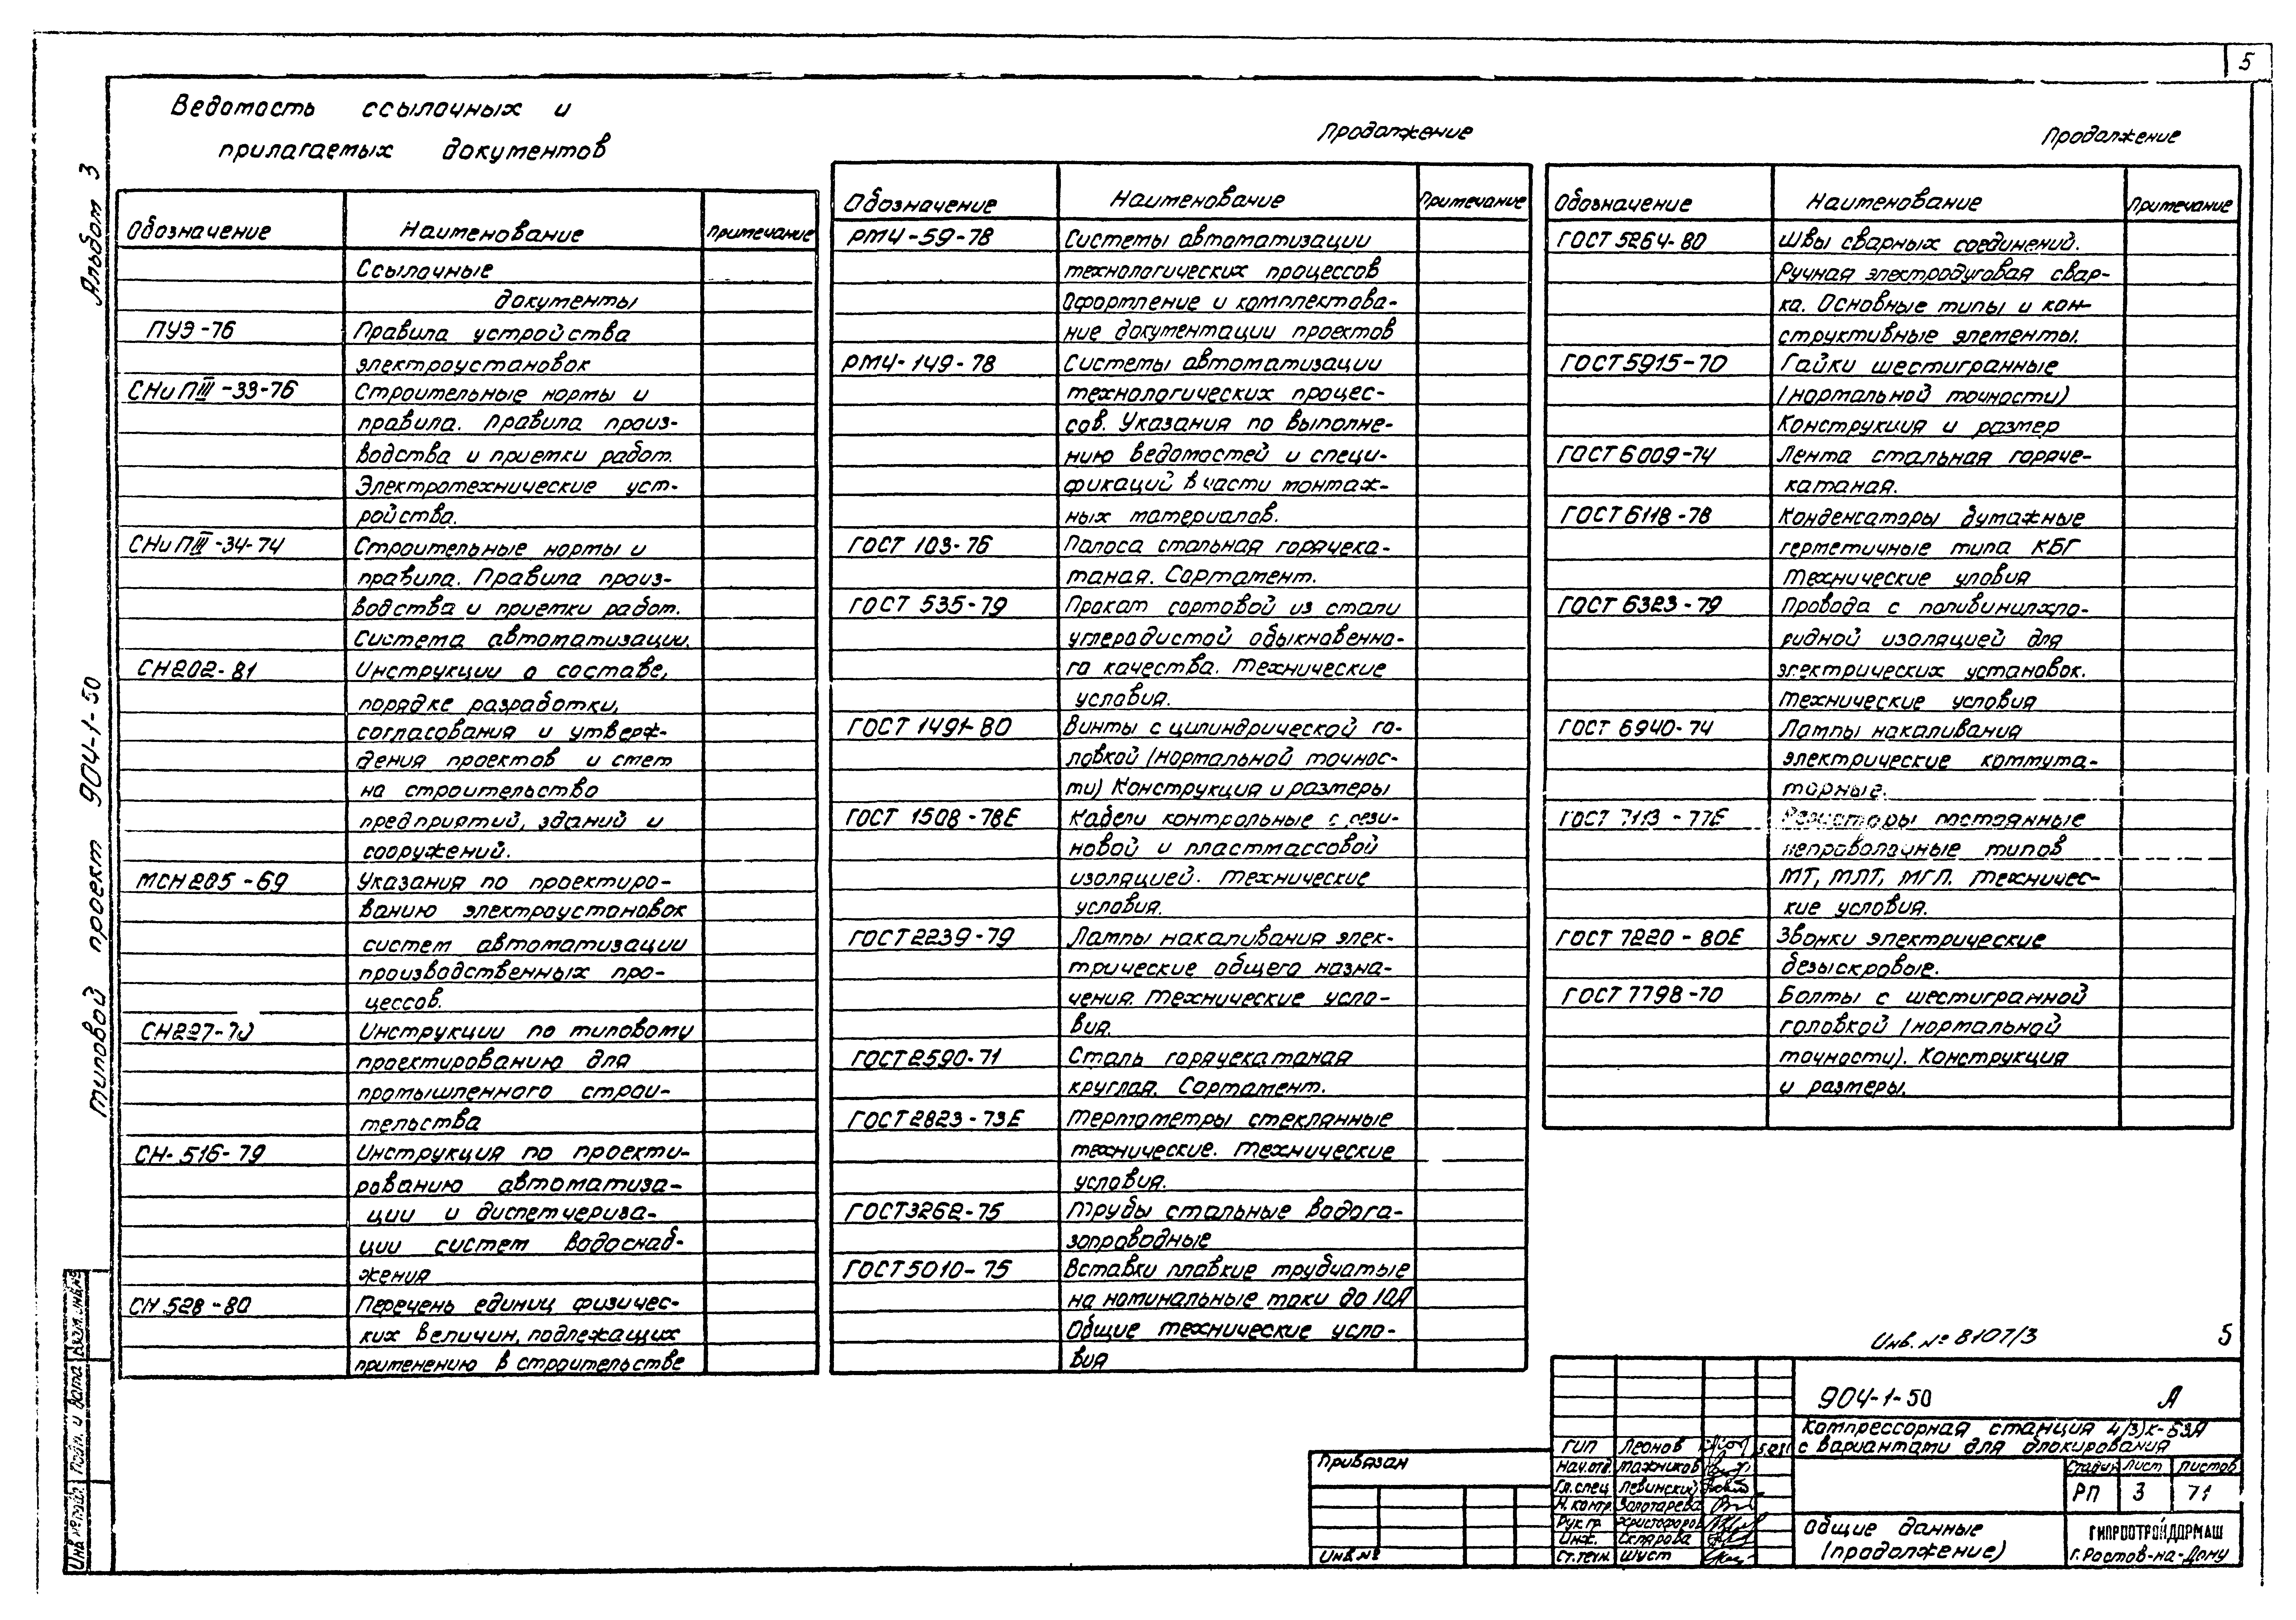 5
Ведомость ссылочных и
прилагаемых документов
Обозначение Наименование Примечание
Ссылочные
документы
ПУЭ-76 Правила устройства
электроустановок
СНиП III-33-76 Строительные нормы и
правила. Правила произ-
водства и приемки работ.
Электротехнические уст-
ройства.
СНиП III-34-74 Строительные нормы и
правила. Правила произ-
водства и приемки работ.
Система автоматизации.
СН202-81 Инструкции о составе,
порядке разработки,
согласования и утверж-
дения проектов и смет
на строительство
предприятий, зданий и
сооружений.
МСН205-69 Указания по проектиро-
ванию электроустановок
систем автоматизации
производственных про-
цессов.
СН227-70 Инструкции по типовому
проектированию для
промышленного строи-
тельства
СН-516-79 Инструкция по проекти-
рованию автоматиза-
ции и диспетчериза-
ции систем водоснаб-
жения
СН 528-80 Перечень единиц физичес-
ких величин, подлежащих
применению в строительстве
Продолжение
Обозначение Наименование Примечание
РМ4-59-78 Системы автоматизации
технологических процессов
Оформление и комплектова-
ние документации проектов
РМ4-149-78 Системы автоматизации
технологических процес-
сов. Указания по выполне-
нию ведомостей и специ-
фикаций в части монтаж-
ных материалов.
ГОСТ 103-76 Полоса стальная горячека-
таная. Сортамент.
ГОСТ 535-79 Прокат сортовой из стали
углеродистой обыкновенно-
го качества. Технические
условия.
ГОСТ 1491-80 Винты с цилиндрической го-
ловкой (нормальной точнос-
ти) Конструкция и размеры
ГОСТ 1508-78Е Кабели контрольные с рези-
новой и пластмассовой
изоляцией. Технические
условия.
ГОСТ 2239-79 Лампы накаливания элек-
трические общего назна-
чения. Технические усло-
вия.
ГОСТ 2590-71 Сталь горячекатаная
круглая. Сортамент.
ГОСТ 2823-73Е Термометры стеклянные
технические. Технические
условия.
ГОСТ 3262-75 Трубы стальные водога-
зопроводные
ГОСТ 5010-75 Вставки плавкие трубчатые
на номинальные токи до 10А
Общие технические усло-
вия
Продолжение
Обозначение Наименование Примечание
ГОСТ 5264-80 Швы сварных соединений.
Ручная электродуговая свар-
ка. Основные типы и кон-
структивные элементы.
ГОСТ 5915-70 Гайки шестигранные
(нормальной точности)
Конструкция и размер
ГОСТ 6009-74 Лента стальная горяче-
катаная.
ГОСТ 6118-78 Конденсаторы бумажные
герметичные типа КБГ
Технические уловия
ГОСТ 6323-79 Провода с поливинилхло-
ридной изоляцией для
электрических установок.
Технические условия
ГОСТ 6940-74 Лампы накаливания
электрические коммута-
торные.
ГОСТ 7113-77Е Резисторы постоянные
непроволочные типов
МТ, МЛТ, МГП. Техничес-
кие условия.
ГОСТ 7220-80Е Звонки электрические
безыскровые.
ГОСТ 7798-70 Болты с шестигранной
головкой (нормальной
точности). Конструкция
и размеры.
Альбом 3
Типовой проект 904-1-50
Взам. инв.№
Подп. и дата
Инв № подл.
Инв. № 8107/3 5
904-1-50 А
Компрессорная станция 4(3)К-53А
с вариантами для блокирования
ГИП Леонов
Нач.отд. Мажников
Гл.спец Левинский
Н.контр. Золотарева
Рук.гр. Христофоров
Инж. Склярова
Ст.техн. Шуст
Стадия Лист Листов
РП 3 71
Общие данные
(продолжение)
ГИПРОСТРОЙДОРМАШ
г.Ростов-на-Дону
Привязан
Инв.№